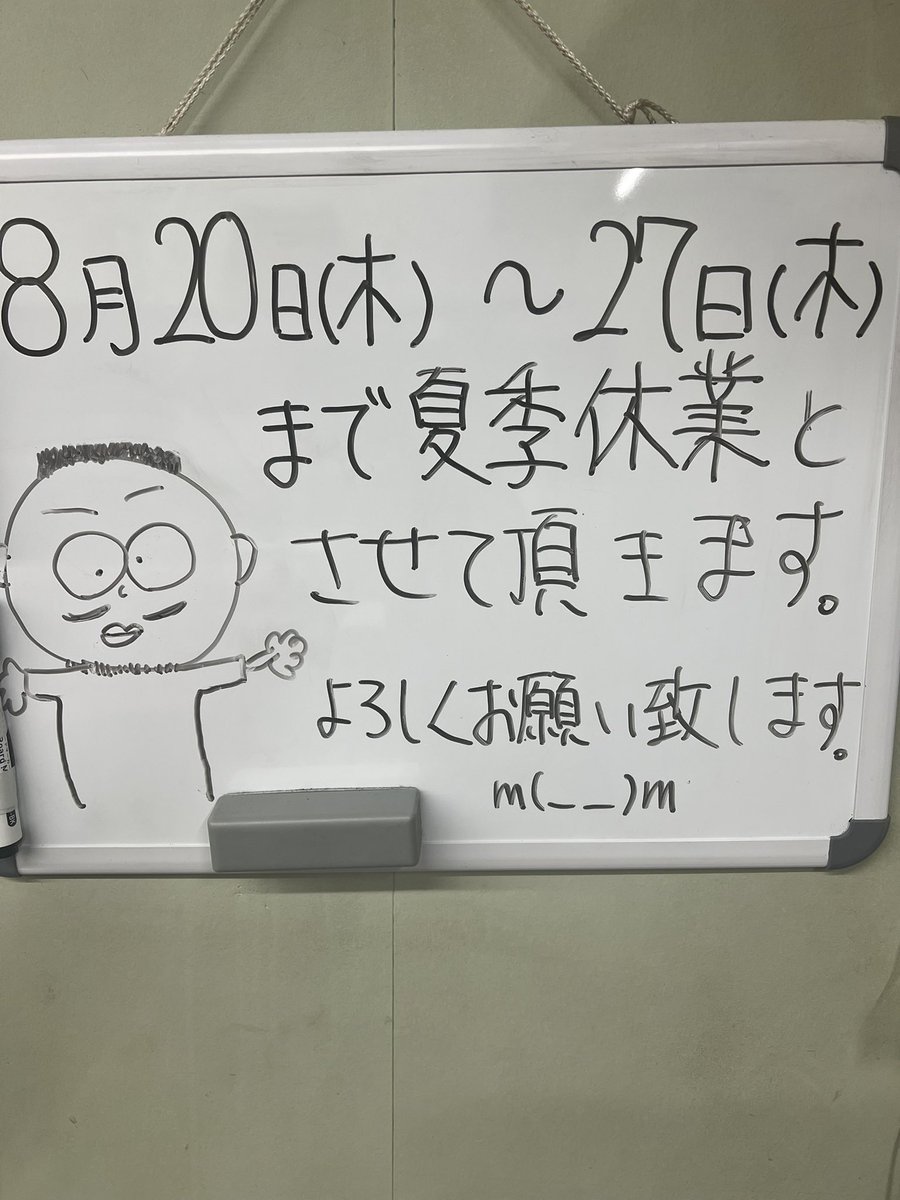 8月20日(木)～27日(木)
まで夏季休業と
させて頂きます。
よろしくお願い致します。
m(_ _)m